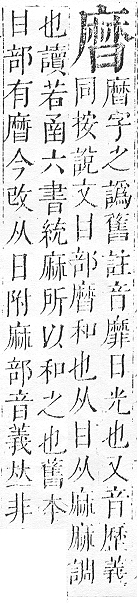 暦
暦字之譌舊註音靡日光也又音歷義
同按說文日部暦和也从日从麻麻調
也讀若函六書統麻所以和之也舊本
日部有暦今改从日附麻部音義𠀤非